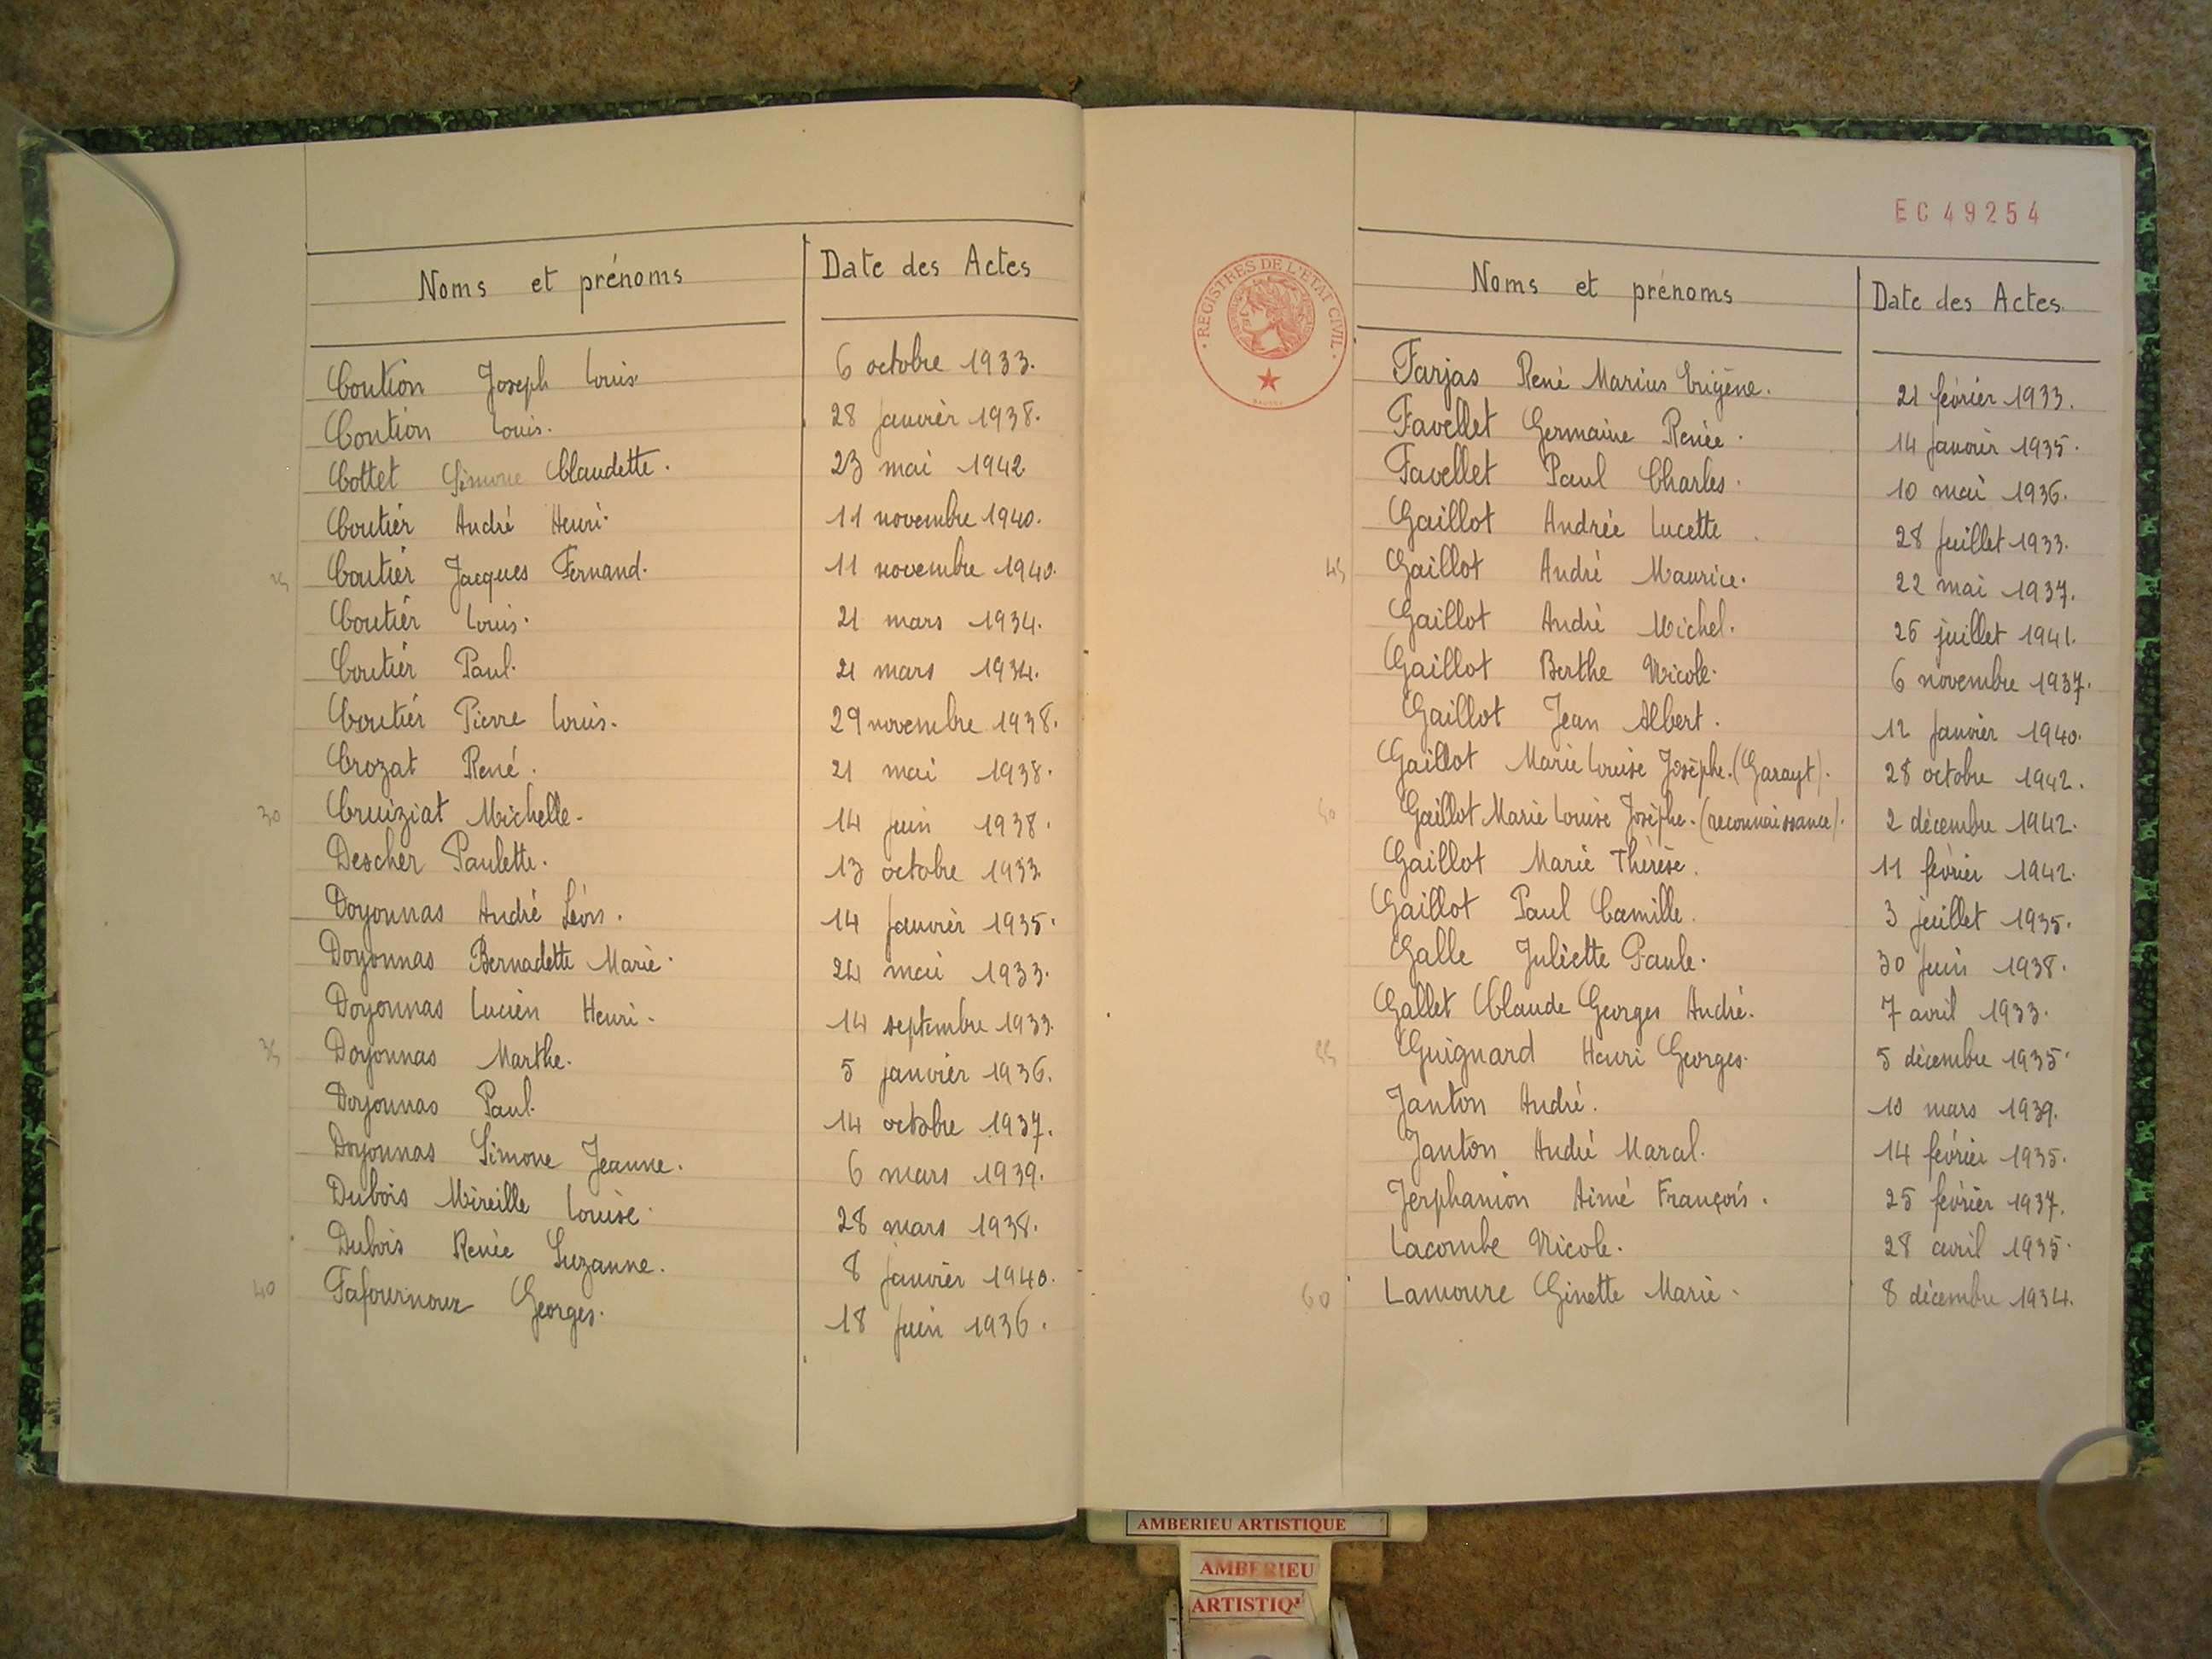 Noms et prénoms Date des Actes
Coution Joseph Louis 6 octobre 1933.
Coution Louis. 28 janvier 1938.
Cottet Simone Claudette. 23 mai 1942
Coutier André Henri. 11 novembre 1940.
25 Coutier Jacques Fernand. 11 novembre 1940.
Coutier Louis. 21 mars 1934.
Coutier Paul. 21 mars 1934.
Coutier Pierre Louis. 29 novembre 1938.
Crozat René. 21 mai 1938.
30 Cruiziat Michelle. 14 juin 1938.
Descher Paulette. 13 octobre 1933
Doyonnas André Léon. 14 janvier 1935.
Doyonnas Bernadette Marie. 24 mai 1933.
Doyonnas Lucien Henri. 14 septembre 1933.
35 Doyonnas Marthe. 5 janvier 1936.
Doyonnas Paul. 14 octobre 1937.
Doyonnas Simone Jeanne. 6 mars 1939.
Dubois Mireille Louise. 28 mars 1938.
Dubois Renée Suzanne. 8 janvier 1940.
40 Fafournoux Georges. 18 juin 1936.
EC 49254
REGISTRES DE L'ETAT CIVIL
Noms et prénoms Date des Actes
Farjas René Marius Eugène. 21 février 1933.
Favellet Germaine Renée. 14 janvier 1935.
Favellet Paul Charles. 10 mai 1936.
Gaillot Andrée Lucette 28 juillet 1933.
45 Gaillot André Maurice. 22 mai 1937.
Gaillot André Michel. 26 juillet 1941.
Gaillot Berthe Nicole. 6 novembre 1937.
Gaillot Jean Albert. 12 janvier 1940.
Gaillot Marie Louise Josèphe. (Garayt). 28 octobre 1942.
50 Gaillot Marie Louise Josèphe. (reconnaissance). 2 décembre 1942.
Gaillot Marie Thérèse. 11 février 1942.
Gaillot Paul Camille. 3 juillet 1935.
Galle Juliette Paule. 30 juin 1938.
Gallet Claude Georges André. 7 avril 1933.
55 Guignard Henri Georges. 5 décembre 1935.
Janton André. 10 mars 1939.
Janton André Marcel. 14 février 1935.
Jerphanion Aimé François. 25 février 1937.
Lacombe Nicole. 28 avril 1935.
60 Lamoure Ginette Marie. 8 décembre 1934.
AMBERIEU ARTISTIQUE
AMBERIEU
ARTISTIQU